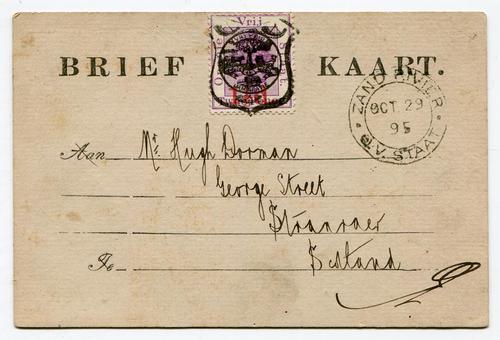 Vrij
BRIEF KAART.
ZAND RIVIER
OCT 29
95
O.V. STAAT.
Aan Mr. Hugh Dorman
George Street
Stranraer
Te Scotland